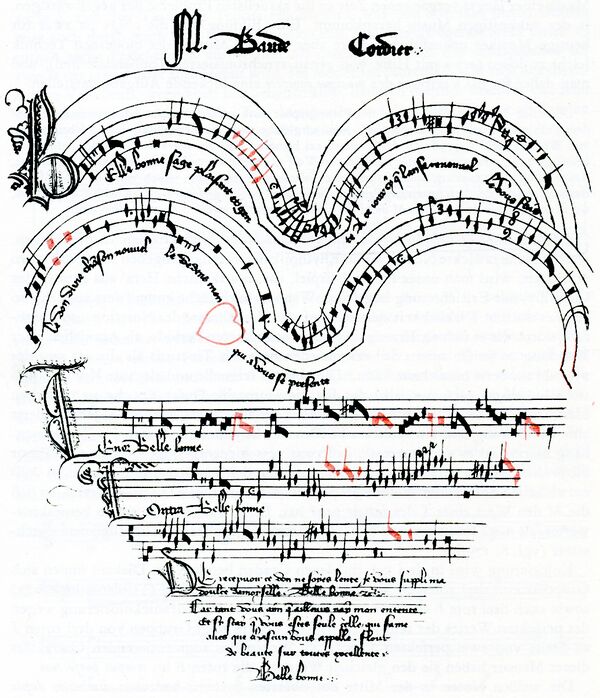 M. Baude Cordier
B Elle bonne sage plaisant et gen
te A ce jour cy que lan se renouvel
le Vous fais
le don dune chanson nouvel
le Dedens mon
qui a vous se presente
T Enor Belle bonne
C Ontra Belle bonne
De recepvoir ce don ne soyes lente, je vous suppli ma
doulce damoyselle. Belle bonne. etc.
Car tant vous aim quaillours nay mon entente
et sy scay que vous estes seule celle qui fame
aves que chascun vous appelle. flour
de biaute sur toutes excellente.
Belle bonne.